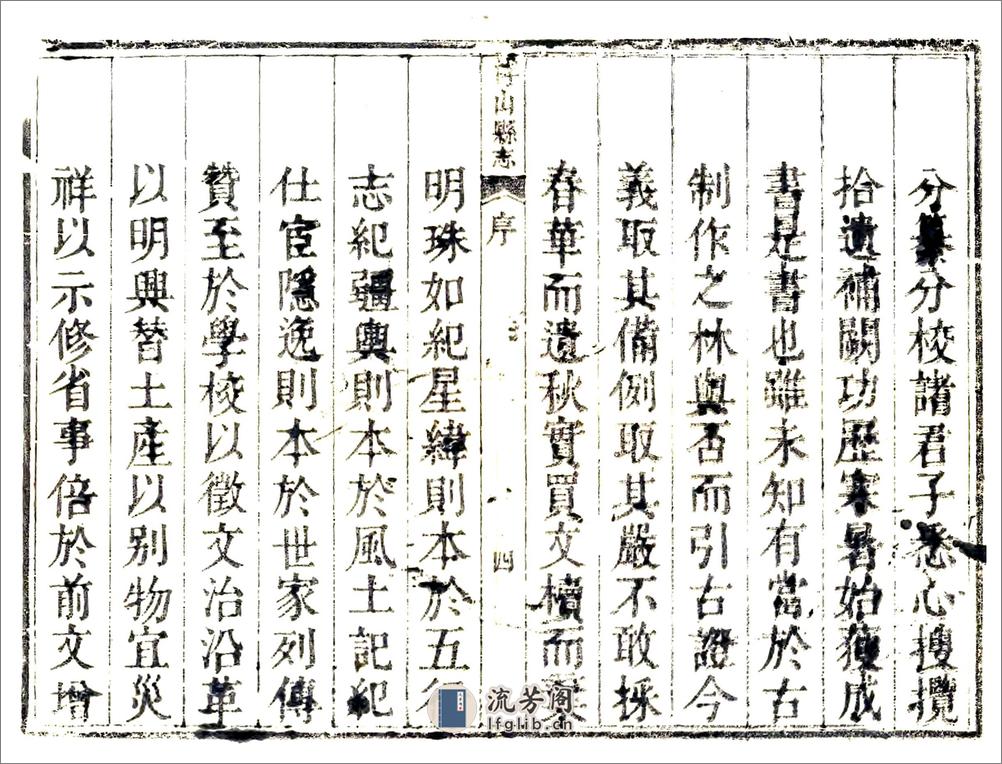 分纂分校諸君子悉心搜攬
拾遺補闕功歷寒暑始獲成
書是書也雖未知有當於古
制作之林與否而引古證今
義取其備例取其嚴不敢採
春華而遺秋實買文櫝而
山縣志 序 四
明珠如紀星緯則本於五行
志紀疆輿則本於風土記紀
仕宦隱逸則本於世家列傳
贊至於學校以徵文治沿革
以明興替土產以别物宜災
祥以示修省事倍於前文增
流芳阁
lfglib.cn